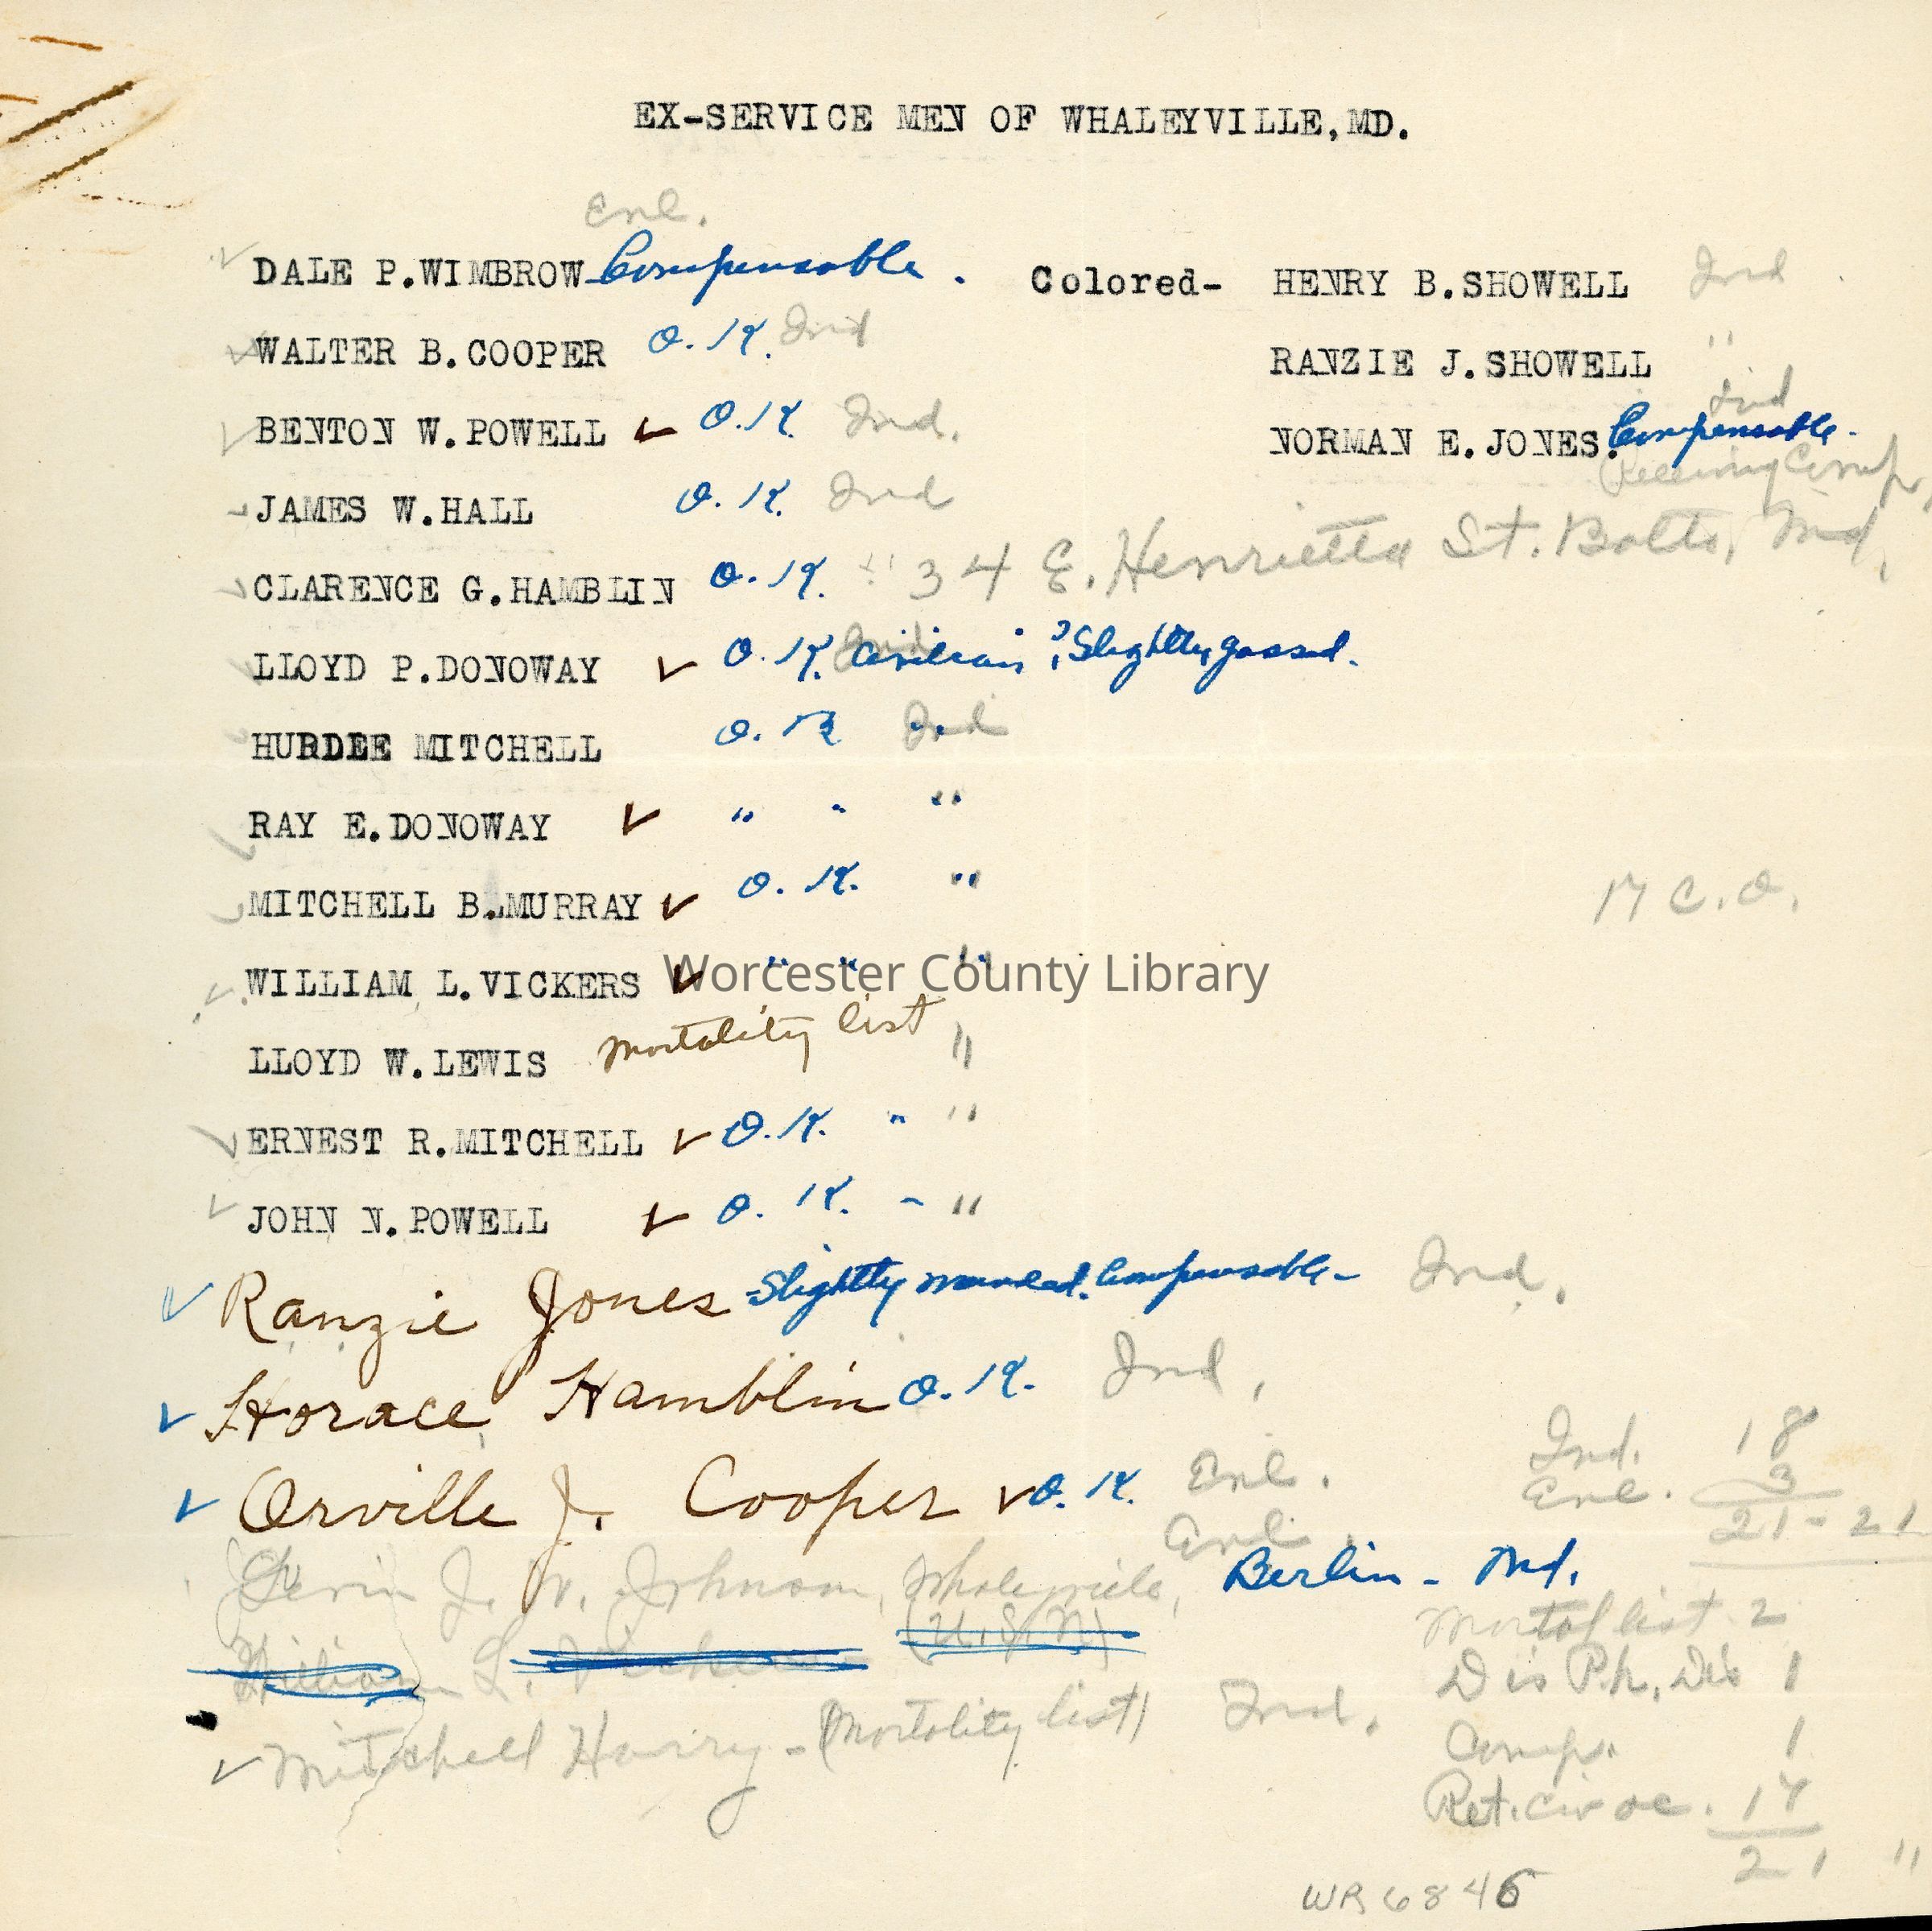 EX-SERVICE MEN OF WHALEYVILLE,MD.
Enl.
DALE P.WIMBROW Compensable.
WALTER B.COOPER O.K. Ind
BENTON W.POWELL ✓ O.K. Ind.
JAMES W.HALL O.K. Ind
CLARENCE G.HAMBLIN O.K. " 34 E. Henrietta St. Balto, Md.
LLOYD P.DONOWAY ✓ O.K. civilian ? Slightly gassed.
HURDEE MITCHELL O.K. Ind
RAY E.DONOWAY ✓ " " "
MITCHELL B.MURRAY ✓ O.K. "
WILLIAM L.VICKERS ✓ " " "
LLOYD W.LEWIS Mortality list "
ERNEST R.MITCHELL ✓ O.K. " "
JOHN N.POWELL ✓ O.K. - "
Ranzie Jones - Slightly wounded. Compensable - Ind.
Horace Hamblin O.K. Ind.
Orville J. Cooper ✓ O.K. Enl.
Enl.
J. W. Johnson, Whaleyville, Berlin - Md.
(U.S.N)
William L. Vickers
Mitchell Harry - (Mortality list) Ind.
Colored- HENRY B.SHOWELL Ind
RANZIE J.SHOWELL "
Ind
NORMAN E.JONES. Compensable.
Receiving Comp.
17 C.O.
Ind. 18
Enl. 3
21 - 21
Mortal list 2
Dis P.h. Dis 1
Comp. 1
Ret. civ oc. 17
21 "
WR6846
Worcester County Library